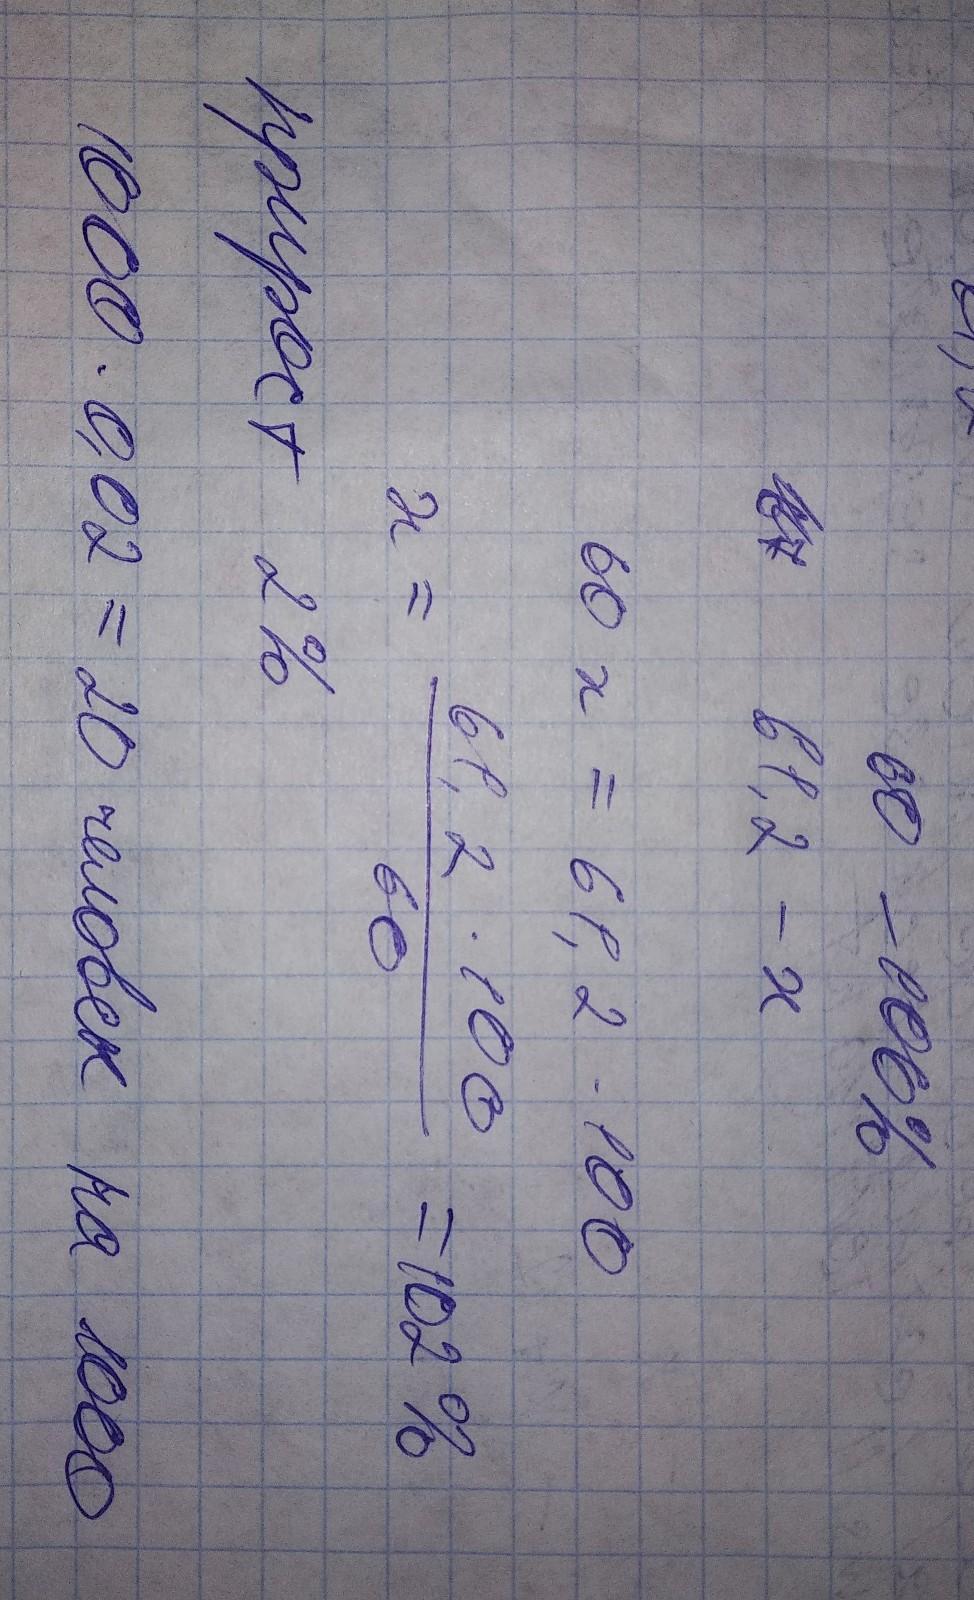 60 – 100%
61,2 – x
60 x = 61,2 · 100
x = 61,2 · 100 / 60 = 102%
прирост 2%
1000 · 0,02 = 20 человек на 1000